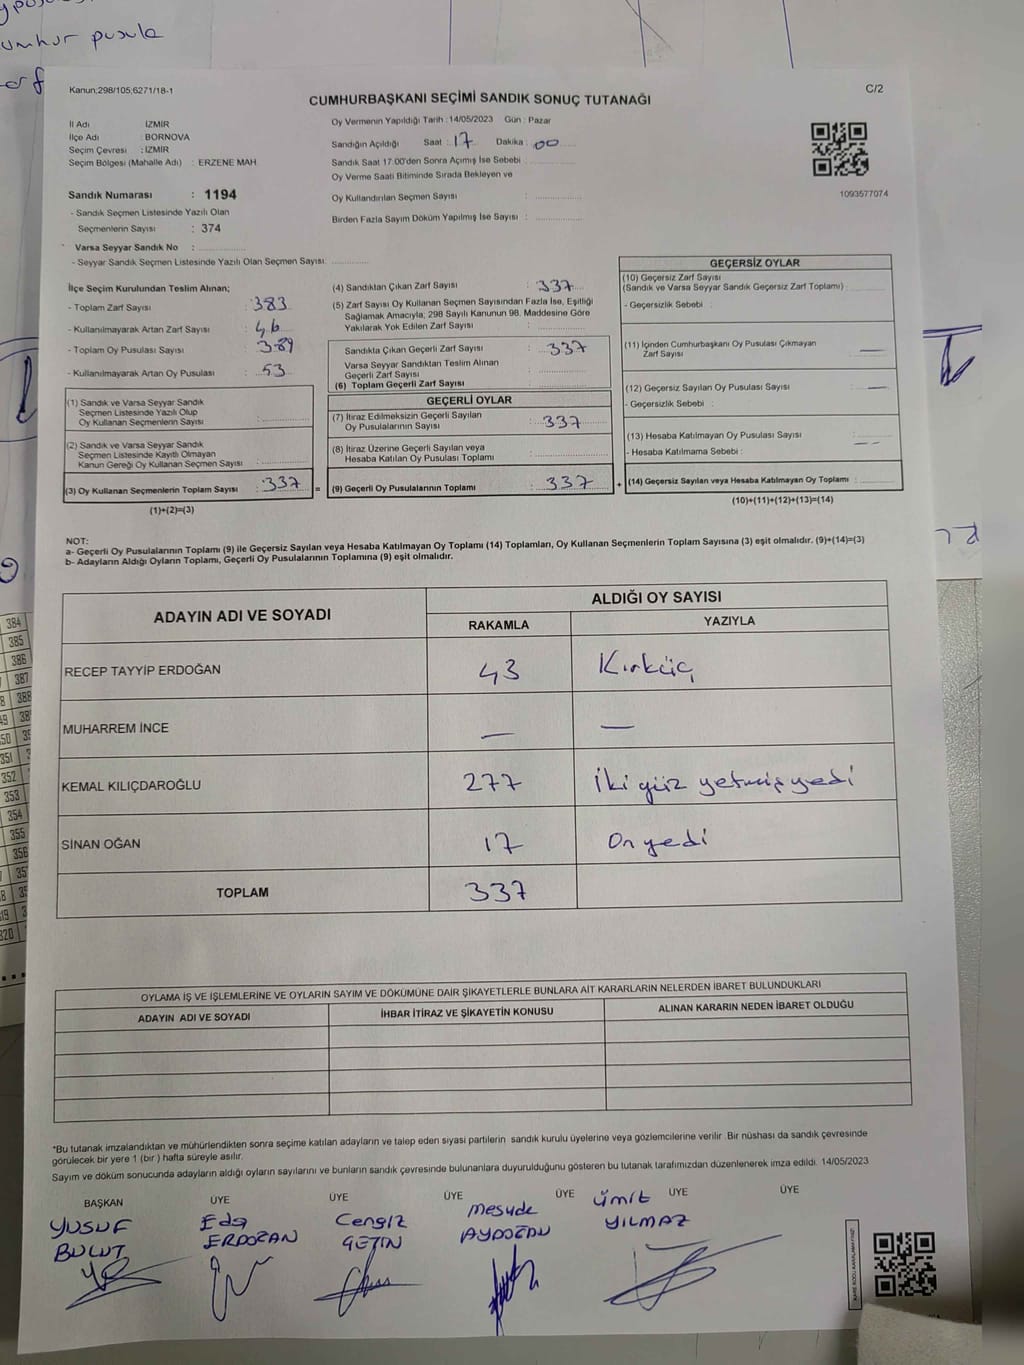 umhur pusula
Kanun;298/105;6271/18-1
C/2
CUMHURBAŞKANI SEÇİMİ SANDIK SONUÇ TUTANAĞI
İl Adı : İZMİR
İlçe Adı : BORNOVA
Seçim Çevresi : İZMİR
Seçim Bölgesi (Mahalle Adı) : ERZENE MAH.
Sandık Numarası : 1194
- Sandık Seçmen Listesinde Yazılı Olan
Seçmenlerin Sayısı : 374
Varsa Seyyar Sandık No :
- Seyyar Sandık Seçmen Listesinde Yazılı Olan Seçmen Sayısı:
Oy Vermenin Yapıldığı Tarih :14/05/2023 Gün : Pazar
Sandığın Açıldığı Saat : 17 Dakika : 00
Sandık Saat 17:00'den Sonra Açılmış İse Sebebi :
Oy Verme Saati Bitiminde Sırada Bekleyen ve
Oy Kullandırılan Seçmen Sayısı :
Birden Fazla Sayım Döküm Yapılmış İse Sayısı :
1093577074
İlçe Seçim Kurulundan Teslim Alınan;
- Toplam Zarf Sayısı : 383
- Kullanılmayarak Artan Zarf Sayısı : 46
- Toplam Oy Pusulası Sayısı : 389
- Kullanılmayarak Artan Oy Pusulası : 53
(1) Sandık ve Varsa Seyyar Sandık
Seçmen Listesinde Yazılı Olup
Oy Kullanan Seçmenlerin Sayısı :
(2) Sandık ve Varsa Seyyar Sandık
Seçmen Listesinde Kayıtlı Olmayan
Kanun Gereği Oy Kullanan Seçmen Sayısı :
(3) Oy Kullanan Seçmenlerin Toplam Sayısı : 337 =
(1)+(2)=(3)
(4) Sandıktan Çıkan Zarf Sayısı : 337
(5) Zarf Sayısı Oy Kullanan Seçmen Sayısından Fazla İse, Eşitliği
Sağlamak Amacıyla; 298 Sayılı Kanunun 98. Maddesine Göre
Yakılarak Yok Edilen Zarf Sayısı :
Sandıkta Çıkan Geçerli Zarf Sayısı : 337
Varsa Seyyar Sandıktan Teslim Alınan
Geçerli Zarf Sayısı :
(6) Toplam Geçerli Zarf Sayısı :
GEÇERLİ OYLAR
(7) İtiraz Edilmeksizin Geçerli Sayılan
Oy Pusulalarının Sayısı : 337
(8) İtiraz Üzerine Geçerli Sayılan veya
Hesaba Katılan Oy Pusulası Toplamı :
(9) Geçerli Oy Pusulalarının Toplamı : 337 +
GEÇERSİZ OYLAR
(10) Geçersiz Zarf Sayısı
(Sandık ve Varsa Seyyar Sandık Geçersiz Zarf Toplamı) :
- Geçersizlik Sebebi :
(11) İçinden Cumhurbaşkanı Oy Pusulası Çıkmayan
Zarf Sayısı : —
(12) Geçersiz Sayılan Oy Pusulası Sayısı : —
- Geçersizlik Sebebi :
(13) Hesaba Katılmayan Oy Pusulası Sayısı :
- Hesaba Katılmama Sebebi : — —
(14) Geçersiz Sayılan veya Hesaba Katılmayan Oy Toplamı :
(10)+(11)+(12)+(13)=(14)
NOT:
a- Geçerli Oy Pusulalarının Toplamı (9) ile Geçersiz Sayılan veya Hesaba Katılmayan Oy Toplamı (14) Toplamları, Oy Kullanan Seçmenlerin Toplam Sayısına (3) eşit olmalıdır. (9)+(14)=(3)
b- Adayların Aldığı Oyların Toplamı, Geçerli Oy Pusulalarının Toplamına (9) eşit olmalıdır.
ADAYIN ADI VE SOYADI
ALDIĞI OY SAYISI
RAKAMLA YAZIYLA
RECEP TAYYİP ERDOĞAN 43 Kırküç
MUHARREM İNCE — —
KEMAL KILIÇDAROĞLU 277 İki yüz yetmiş yedi
SİNAN OĞAN 17 On yedi
TOPLAM 337
OYLAMA İŞ VE İŞLEMLERİNE VE OYLARIN SAYIM VE DÖKÜMÜNE DAİR ŞİKAYETLERLE BUNLARA AİT KARARLARIN NELERDEN İBARET BULUNDUKLARI
ADAYIN ADI VE SOYADI İHBAR İTİRAZ VE ŞİKAYETİN KONUSU ALINAN KARARIN NEDEN İBARET OLDUĞU
*Bu tutanak imzalandıktan ve mühürlendikten sonra seçime katılan adayların ve talep eden siyasi partilerin sandık kurulu üyelerine veya gözlemcilerine verilir. Bir nüshası da sandık çevresinde
görülecek bir yere 1 (bir ) hafta süreyle asılır.
Sayım ve döküm sonucunda adayların aldığı oyların sayılarını ve bunların sandık çevresinde bulunanlara duyurulduğunu gösteren bu tutanak tarafımızdan düzenlenerek imza edildi. 14/05/2023
BAŞKAN ÜYE ÜYE ÜYE ÜYE ÜYE ÜYE
YUSUF BULUT
Eda ERDOĞAN
Cengiz ÇETİN
Mesude AYDOĞDU
Ümit YILMAZ
384
385
386
387
352
353
354
355
356